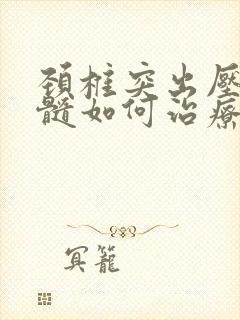 頚椎突出壓
髓如何治療
冥籠